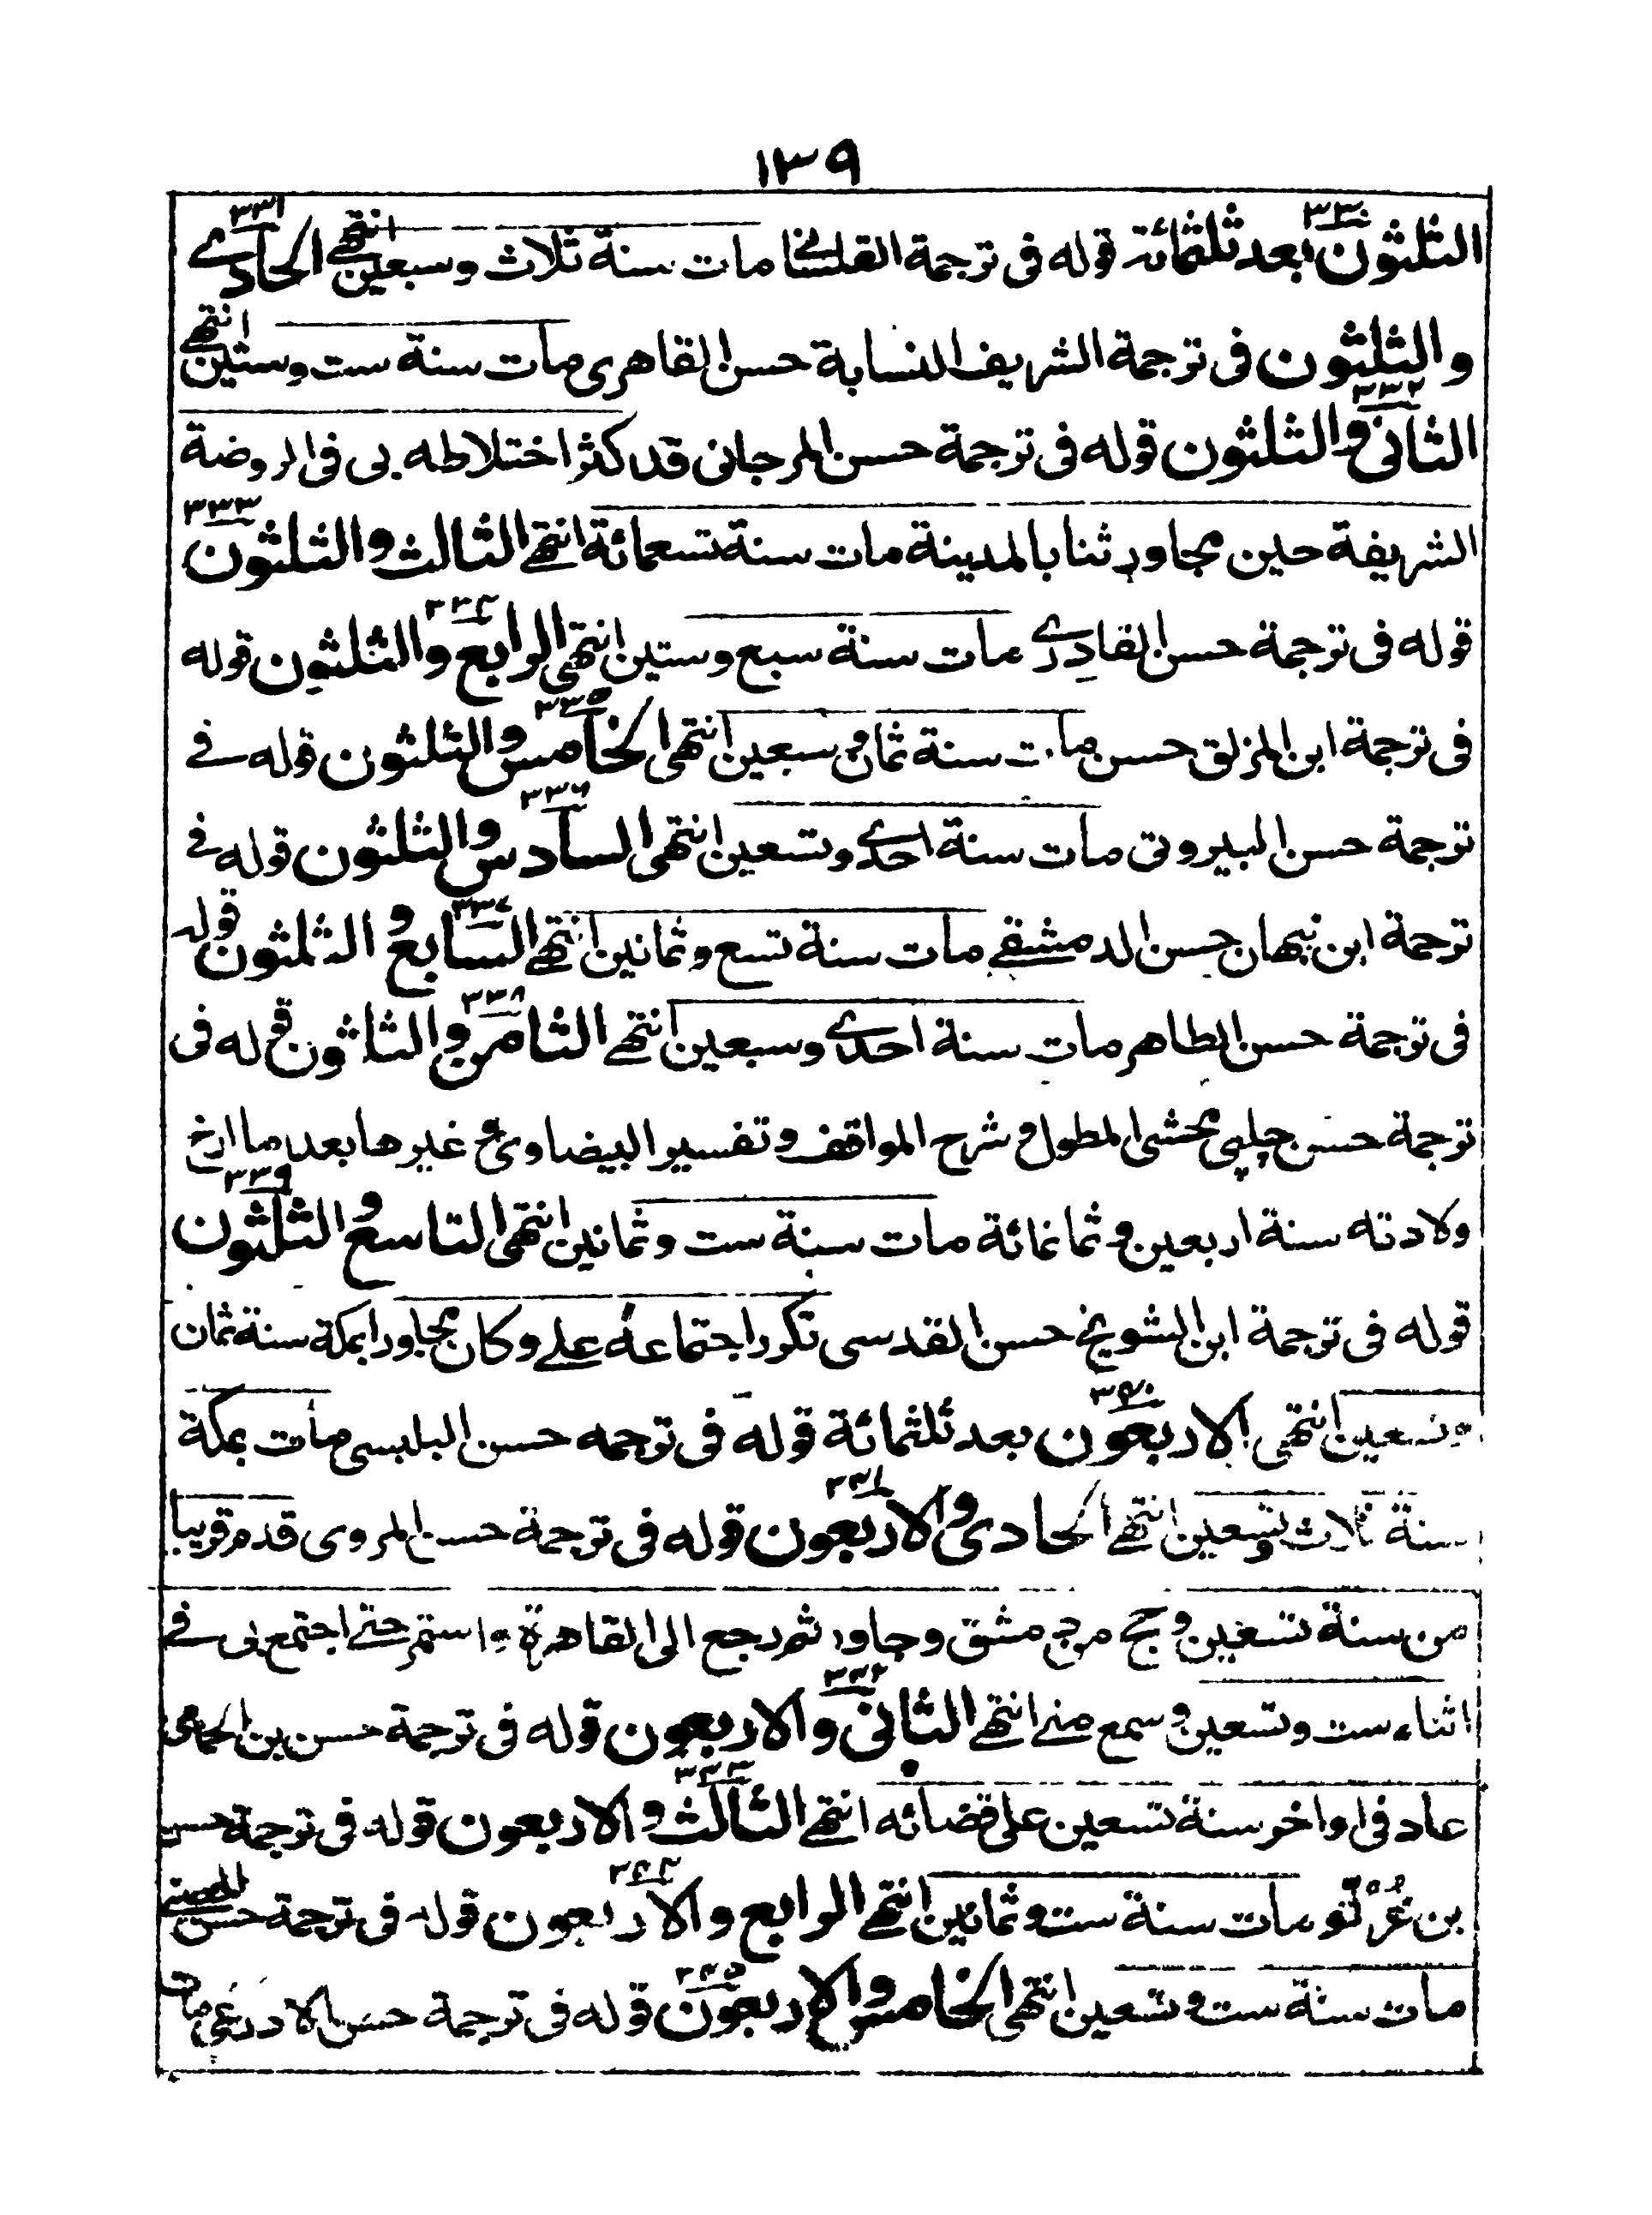 ١٣٩
الثلثون بعد ثلثمائة قوله فى ترجمة مات سنة ثلاث وسبعين انتهى الحادى
٣٣٠ ٣٣١
والثلثون فى ترجمة الشريف النسابة حسن القاهرى مات سنة ست وستين انتهى
الثانى والثلثون قوله فى ترجمة حسن المرجانى قد كثر اختلاطه بى فى الروضة
٣٣٢
الشريفة حين مجاورتنا بالمدينة مات سنة تسعمائة انتهى الثالث والثلثون
٣٣٣
قوله فى ترجمة حسن القادرى مات سنة سبع وستين انتهى الرابع والثلثون قوله
٣٣٤
فى ترجمة ابن المزلق حسن مات سنة ثمان وسبعين انتهى الخامس والثلثون قوله فى
٣٣٥
ترجمة حسن البيروتى مات سنة احدى وتسعين انتهى السادس والثلثون قوله فى
٣٣٦
ترجمة ابن نبهان حسن الدمشقى مات سنة تسع وثمانين انتهى السابع و الثلثون قوله
٣٣٧
فى ترجمة حسن الطاهر مات سنة احدى وسبعين انتهى الثامن والثلثون قوله فى
٣٣٨
ترجمة حسن چلپى محشى المطول و شرح المواقف وتفسير البيضاوى وغيرها بعد ما ارخ
ولادته سنة اربعين وثمانمائة مات سنة ست وثمانين انتهى التاسع والثلثون
٣٣٩
قوله فى ترجمة ابن الشويخ حسن القدسى تكرر اجتماعه على وكان مجاورا بمكة سنة ثمان
وتسعين انتهى الاربعون بعد ثلثمائة قوله فى ترجمه حسن البلبسى مات بمكة
٣٤٠
سنة ثلاث وتسعين انتهى الحادى والاربعون قوله فى ترجمة حسن المروى قدم قريبا
٣٤١
من سنة تسعين وحج من دمشق وجاور ثم رجع الى القاهرة واستمر حتى اجتمع بى فى
اثناء ست وتسعين وسمع منى انتهى الثانى والاربعون قوله فى ترجمة حسن بن
٣٤٢
عاد فى اواخر سنة تسعين على قضائه انتهى الثالث والاربعون قوله فى ترجمة حسن
٣٤٣
بن مات سنة ست وثمانين انتهى الرابع والاربعون قوله فى ترجمة حسن
٣٤٤
مات سنة ست وتسعين انتهى الخامس والاربعون قوله فى ترجمة حسن مات
٣٤٥